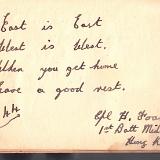 East is East
West is West.
When you get home
Have a good rest.
Cpl H.
1st Batt